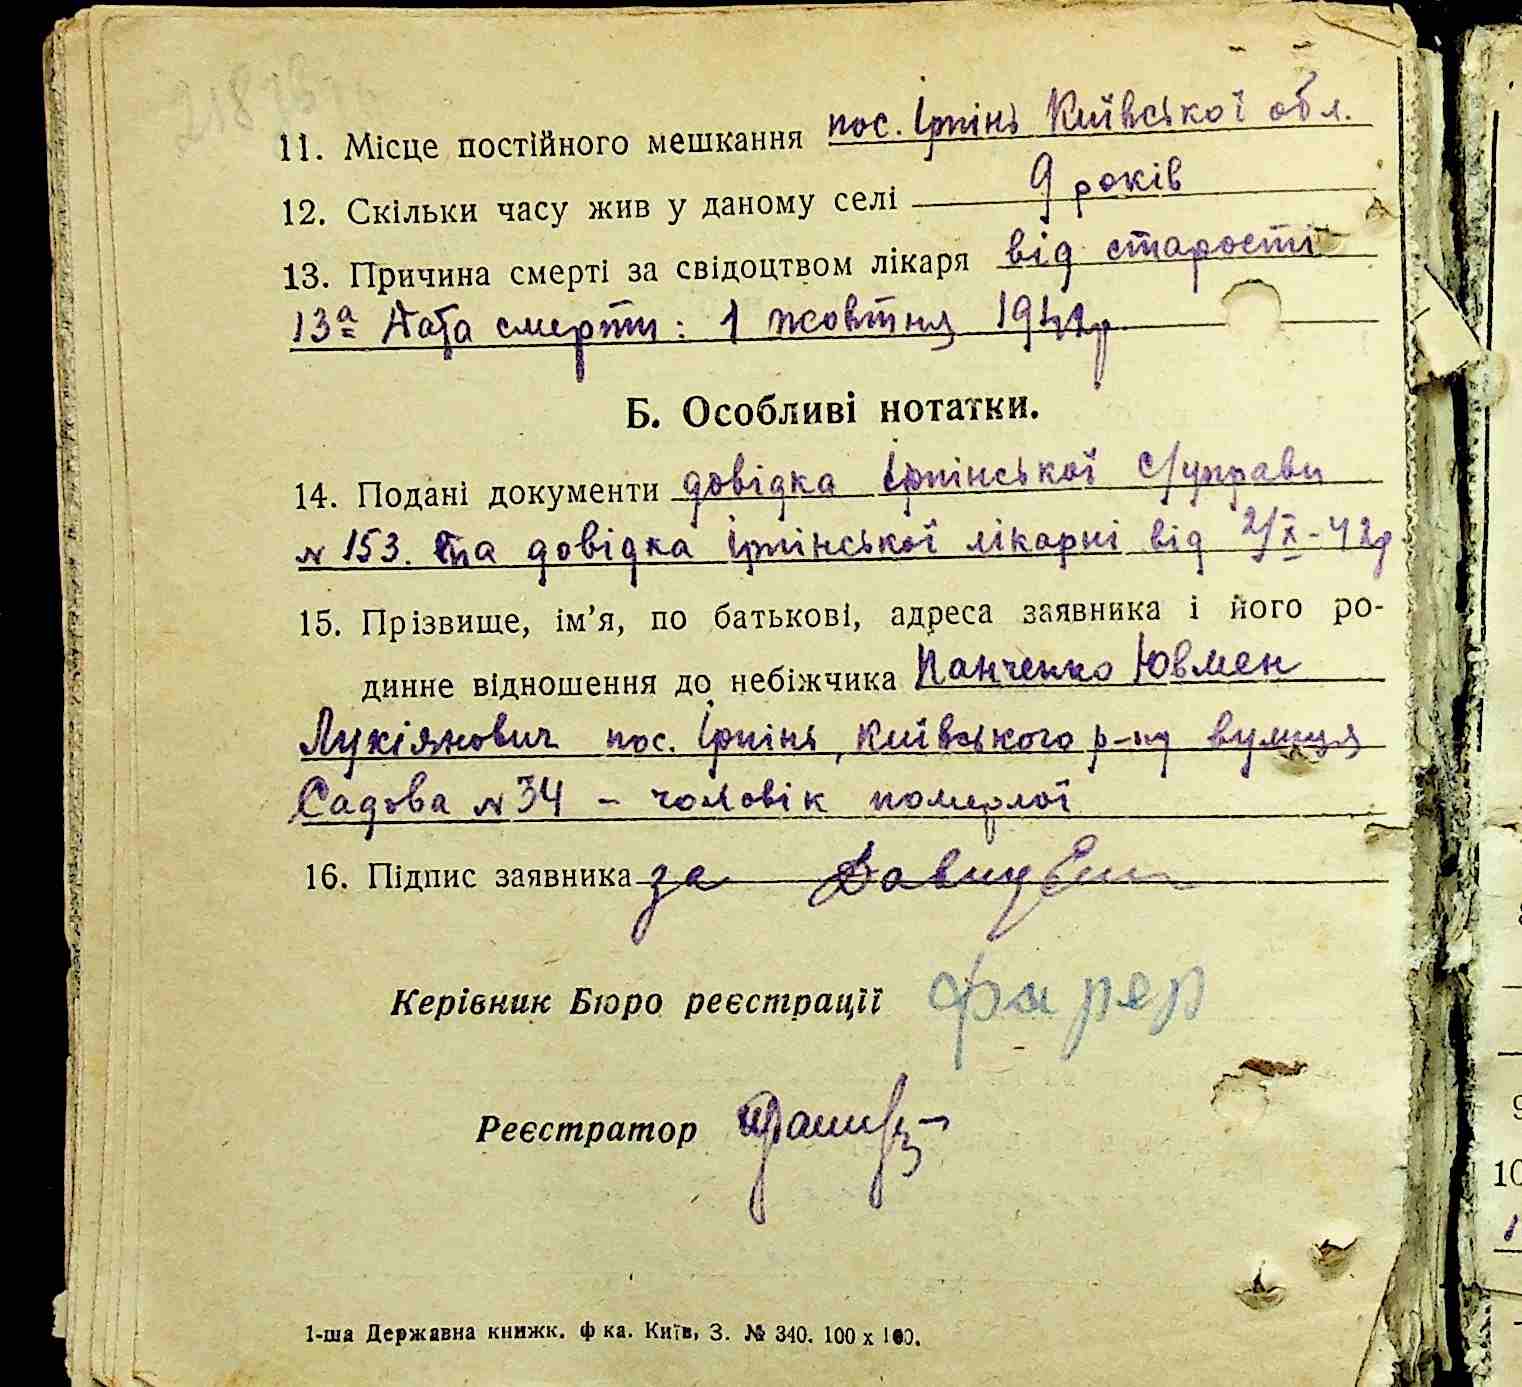 11. Місце постійного мешкання пос. Ірпінь Київської обл.
12. Скільки часу жив у даному селі 9 років
13. Причина смерті за свідоцтвом лікаря від старості
13а Дата смерти: 1 жовтня 1942р
Б. Особливі нотатки.
14. Подані документи довідка Ірпінської с/управи
№ 153. та довідка Ірпінської лікарні від 2/X-42р
15. Прізвище, ім’я, по батькові, адреса заявника і його ро-
динне відношення до небіжчика Панченко Ювмен
Лукіянович пос. Ірпінь, Київського р-ну вулиця
Садова №34 – чоловік померлої
16. Підпис заявника за
Керівник Бюро реєстрації
Реєстратор
1-ша Державна книжк. ф ка. Київ, З. № 340. 100 х 100.
9
10